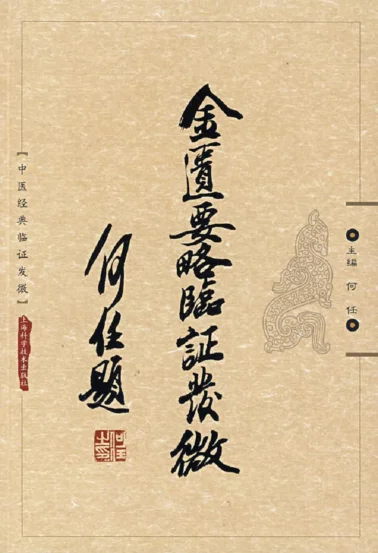 金匱要略臨証發微
何任題
主编 何 任
【中医经典临证发微】
上海科学技术出版社